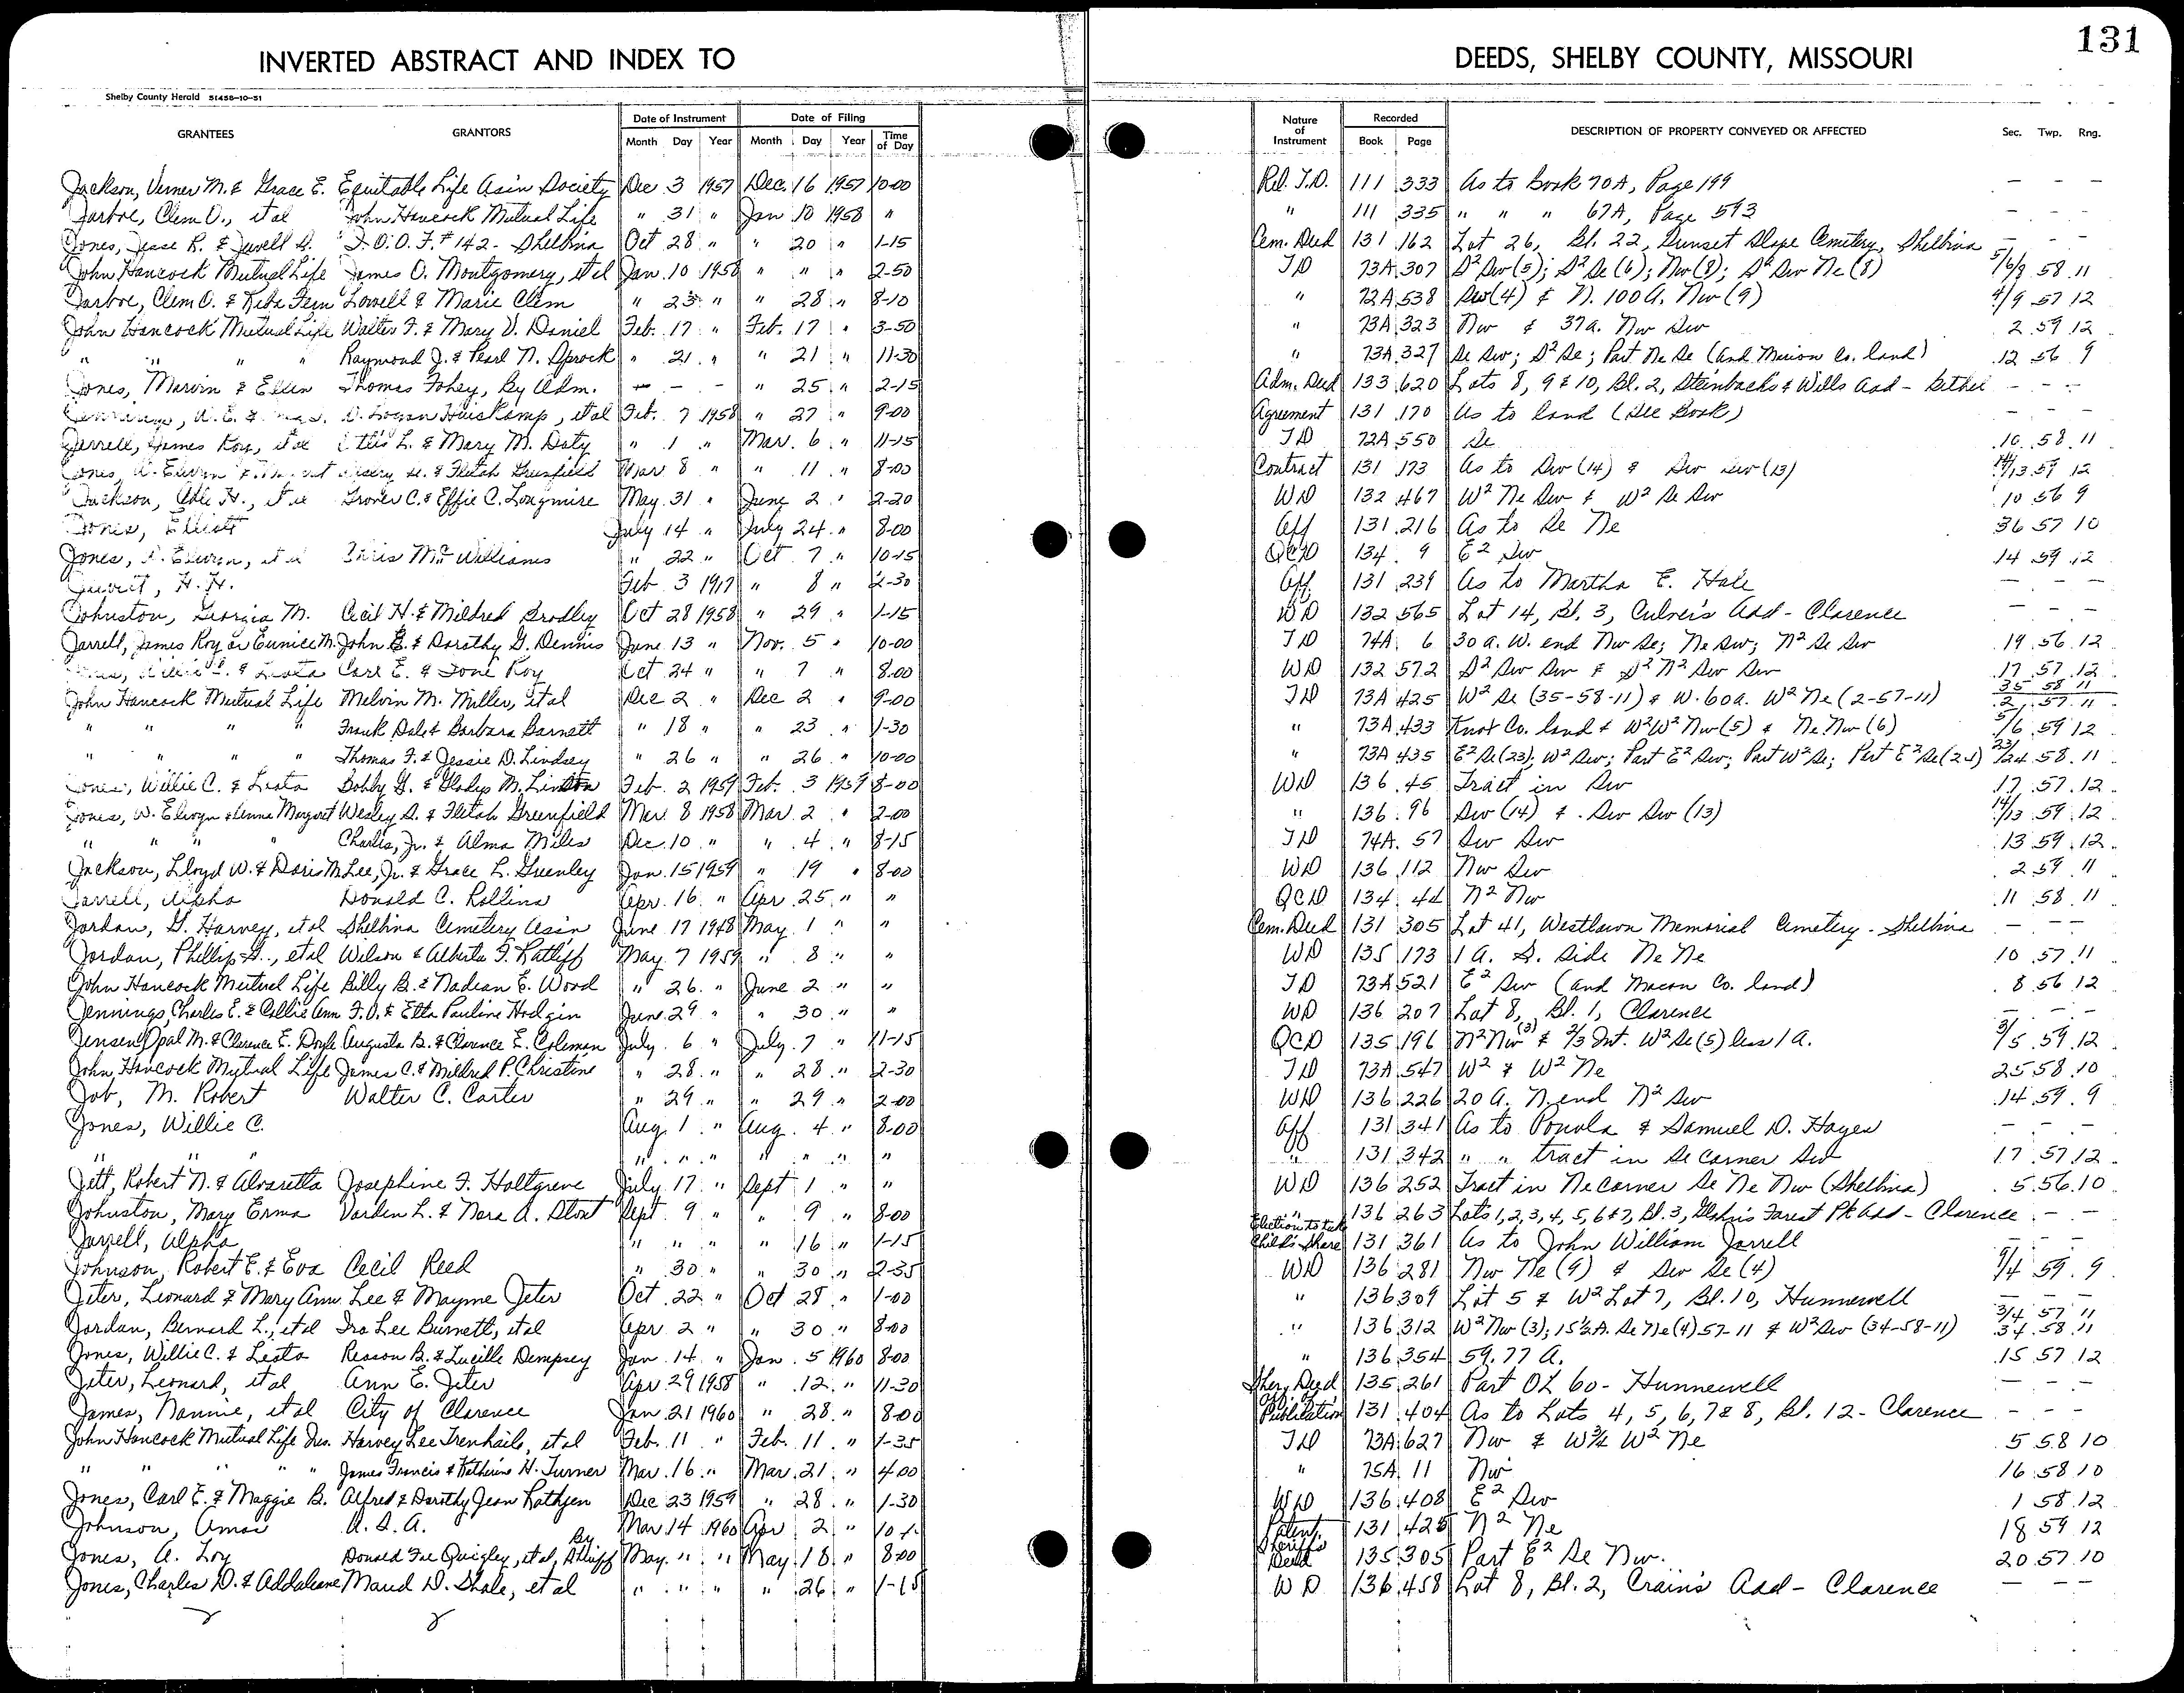 131
INVERTED ABSTRACT AND INDEX TO DEEDS, SHELBY COUNTY, MISSOURI
Shelby County Herald 51458-10-51
GRANTEES GRANTORS Date of Instrument Date of Filing Nature of Instrument Recorded DESCRIPTION OF PROPERTY CONVEYED OR AFFECTED Sec. Twp. Rng.
Month Day Year Month Day Year Time of Day Book Page
Jackson, Verner M. & Grace E. Equitable Life Assn Society Dec 3 1957 Dec. 16 1957 10-00 Rel. T.D. 111 333 As to Book 70A, Page 199 — —
Jarboe, Clem O., et al John Hancock Mutual Life " 31 " Jan 10 1958 " " 111 335 " " " 67A, Page 593 — — —
Jones, Jesse R. & Jewell I.O.O.F. #142 - Shelbina Oct 28 " " 20 " 1-15 Cem. Deed 131 162 Lot 26, Bl. 22, Sunset Slope Cemetery, Shelbina — — —
John Hancock Mutual Life James O. Montgomery, et al Jan. 10 1958 " " " 2-50 TD 73A 307 S² Sw (5); S² Se (6); Nw (8); S² Sw Ne (8) 5/6/8 58 11
Jarboe, Clem O. & Reba Fern Lowell & Marie Clem " 23 " " 28 " 8-10 " 72A 538 Sw (4) & N. 100 A. Nw (9) 4/9 57 12
John Hancock Mutual Life Walter F. & Mary V. Daniel Feb. 17 " Feb. 17 " 3-50 " 73A 323 Nw & 37 a. Nw Sw 2 59 12
" " " " Raymond J. & Pearl N. Sprock " 21 " " 21 " 11-30 " 73A 327 Se Sw; S² Se; Part Ne Se (and Marion Co. land) 12 56 9
Jones, Marvin & Ellen Thomas Fohey, By Adm. — — — " 25 " 2-15 Adm. Deed 133 620 Lots 8, 9 & 10, Bl. 2, Steinbach's & Wills Add - Bethel — — —
W. Logan Huiskamp, et al Feb. 7 1958 " 27 " 9-00 Agreement 131 170 As to land (See Book) — — —
Jerrell, James Roy, et al L. & Mary M. Daty " 1 " Mar. 6 " 11-15 TD 72A 550 Se 10 58 11
Jones, W. Elwyn & Fletah Greenfield Mar 8 " " 11 " 8-00 Contract 131 173 As to Sw (14) & Sw Sw (13) 14/13 59 12
Jackson, H., et al Grover C. & Effie C. Longmire May 31 " June 2 " 2-20 WD 132 467 W² Ne Sw & W² Se Sw 10 56 9
Jones, Elliott July 14 " July 24 " 8-00 Aff 131 216 As to Se Ne 36 57 10
Jones, W. Elwyn, et al Chris McWilliams " 22 " Oct 7 " 10-15 QCD 134 9 E² Sw 14 59 12
H. H. Feb 3 1917 " 8 " 2-30 Aff. 131 239 As to Martha E. Hale — — —
Johnston, Georgia M. Cecil H. & Mildred Bradley Oct 28 1958 " 29 " 1-15 WD 132 565 Lot 14, Bl. 3, Culver's Add - Clarence — — —
Jarrell, James Roy or Eunice M. John E. & Dorothy G. Dennis June 13 " Nov. 5 " 10-00 TD 74A 6 30 a. W. end Nw Se; Ne Sw; N² Se Sw 19 56 12
& Leota Carl E. & Ione Roy Oct 24 " " 7 " 8.00 WD 132 572 S² Sw Sw & S² N² Sw Sw 17 57 12
John Hancock Mutual Life Melvin M. Miller, et al Dec 2 " Dec 2 " 9-00 TD 73A 425 W² Se (35-58-11) & W. 60 a. W² Ne (2-57-11) 35 58 11 2 57 11
" " " " Frank Dale & Barbara Barnett " 18 " " 23 " 1-30 " 73A 433 Knox Co. land & W² W² Nw (5) & Ne Nw (6) 5/6 59 12
" " " " Thomas F. & Jessie D. Lindsey " 26 " " 26 " 10-00 " 73A 435 E² Se (23); W² Sw; Part E² Sw; Part W² Se; Part E² Se (24) 23/24 58 11
Jones, Willie C. & Leota Bobby G. & Gladys M. Linton Feb. 2 1959 Feb. 3 1959 8-00 WD 136 45 Tract in Sw 17 57 12
Jones, W. Elwyn & Anna Margaret Wesley A. & Fletah Greenfield Mar. 8 1958 Mar. 2 " 2-00 " 136 96 Sw (14) & Sw Sw (13) 14/13 59 12
" " " " Charles, Jr. & Alma Miles Dec. 10 " " 4 " 8-15 TD 74A 57 Sw Sw 13 59 12
Jackson, Lloyd W. & Doris M. Lee, Jr. & Grace L. Greenley Jan. 15 1959 " 19 " 8-00 WD 136 112 Nw Sw 2 59 11
Jarrell, Alpha Donald C. Rollins Apr. 16 " Apr. 25 " " QCD 134 44 N² Nw 11 58 11
Jordan, G. Harvey, et al Shelbina Cemetery Assn June 17 1948 May 1 " " Cem. Deed 131 305 Lot 41, Westlawn Memorial Cemetery - Shelbina — — —
Jordan, Phillip G., et al Wilson & Alberta F. Ratliff May 7 1959 " 8 " " WD 135 173 1 A. S. Side Ne Ne 10 57 11
John Hancock Mutual Life Billy B. & Nadean E. Wood " 26 " June 2 " " TD 73A 521 E² Sw (and Macon Co. land) 8 56 12
Jennings, Charles E. & Collie Ann F.O. & Etta Pauline Hodgin June 29 " " 30 " " WD 136 207 Lot 8, Bl. 1, Clarence — — —
Jensen, Opal M. & Clarence E. Doyle Augusta B. & Clarence E. Coleman July 6 " July 7 " 11-15 QCD 135 196 N² Nw (3) & 2/3 Int. W² Se (5) less 1 A. 3/5 59 12
John Hancock Mutual Life James C. & Mildred P. Christine " 28 " " 28 " 2-30 TD 73A 547 W² & W² Ne 25 58 10
Job, M. Robert Walter C. Carter " 29 " " 29 " 2-00 WD 136 226 20 A. N. end N² Sw 14 59 9
Jones, Willie C. Aug. 1 " Aug. 4 " 8-00 Aff 131 341 As to Ponola & Samuel D. Hayes — — —
" " " " " " " " " " " 131 342 " " tract in Se corner Sw 17 57 12
Jett, Robert N. & Alvaretta Josephine F. Holtgreve July 17 " Sept 1 " " WD 136 252 Tract in Ne corner Se Ne Nw (Shelbina) 5 56 10
Johnston, Mary Erma Varden L. & Nora A. Stout Sept. 9 " " 9 " 8-00 " 136 263 Lots 1, 2, 3, 4, 5, 6 & 7, Bl. 3, Forest Pk Add - Clarence — —
Jarrell, Alpha " " " " 16 " 1-15 Election to take Child's Share 131 361 As to John William Jarrell — — —
Johnson, Robert E. & Eva Cecil Reed " 30 " " 30 " 2-35 WD 136 281 Nw Ne (9) & Sw Se (4) 9/4 59 9
Jeter, Leonard & Mary Ann Lee & Mayme Jeter Oct 22 " Oct 28 " 1-00 " 136 309 Lot 5 & W² Lot 7, Bl. 10, Hunnewell — — —
Jordan, Bernard L., et al Ira Lee Burnett, et al Apr 2 " " 30 " 8-00 " 136 312 W² Nw (3); 15½ A. Se Ne (4) 57-11 & W² Sw (34-58-11) 3/4 57 11 34 58 11
Jones, Willie C. & Leota Reason B. & Lucille Dempsey Jan. 14 " Jan. 5 1960 8-00 " 136 354 59.77 A. 15 57 12
Jeter, Leonard, et al Ann E. Jeter Apr 29 1958 " 12 " 11-30 Sher. Deed 135 261 Part OL 60 - Hunnewell — — —
James, Nannie, et al City of Clarence Jan 21 1960 " 28 " 8-00 Aff. of Publication 131 404 As to Lots 4, 5, 6, 7 & 8, Bl. 12 - Clarence — — —
John Hancock Mutual Life Ins. Harvey Lee Trenhaile, et al Feb. 11 " Feb. 11 " 1-35 TD 73A 627 Nw & W¾ W² Ne 5 58 10
" " " " " James Francis & Katherine H. Turner Mar. 16 " Mar. 21 " 4-00 " 75A 11 Nw 16 58 10
Jones, Carl E. & Maggie B. Alfred & Dorothy Jean Rathjen Dec 23 1959 " 28 " 1-30 WD 136 408 E² Sw 1 58 12
Johnson, Amos U.S.A. Mar 14 1960 Apr 2 " Patent 131 425 N² Ne 18 59 12
Jones, A. Loy Donald Quigley, et al, By Sheriff May " " May 18 " 8-00 Sheriff's Deed 135 305 Part E² Se Nw. 20 57 10
Jones, Charles D. & Addaleane Maud D. Shale, et al " " " " 26 " 1-15 WD 136 458 Lot 8, Bl. 2, Crain's Add - Clarence — — —